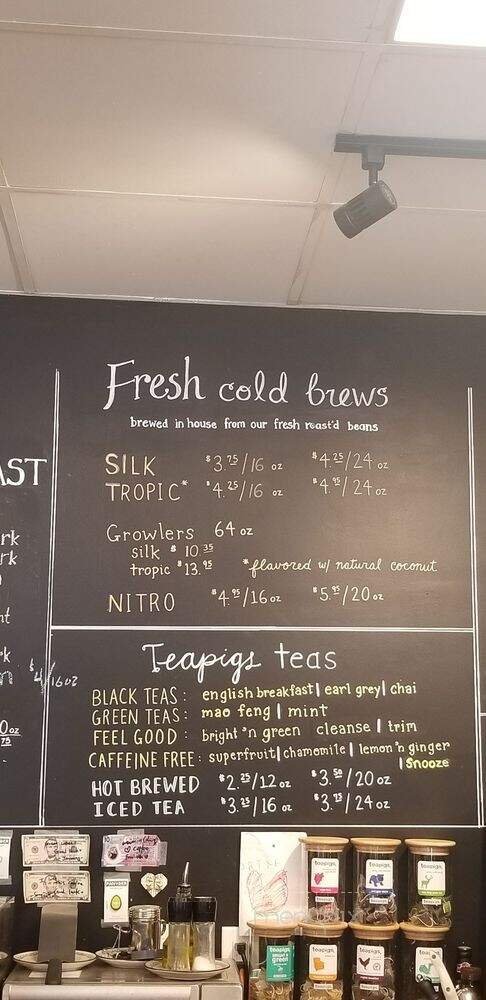 Fresh cold brews
brewed in house from our fresh roast'd beans
SILK $3.75/16 oz $4.25/24 oz
TROPIC* $4.25/16 oz $4.95/24 oz
Growlers 64 oz
silk $10.35
tropic $13.95 *flavored w/ natural coconut
NITRO $4.95/16 oz $5.95/20 oz
Teapigs teas
BLACK TEAS: english breakfast | earl grey | chai
GREEN TEAS: mao feng | mint
FEEL GOOD: bright 'n green cleanse | trim
CAFFEINE FREE: superfruit | chamomile | lemon 'n ginger
| Snooze
HOT BREWED $2.25/12 oz $3.50/20 oz
ICED TEA $3.25/16 oz $3.75/24 oz
AST
rk
rk
nt
k
$4/16oz
teapigs.
teapigs.
teapigs.
teapigs.
teapigs.
teapigs.